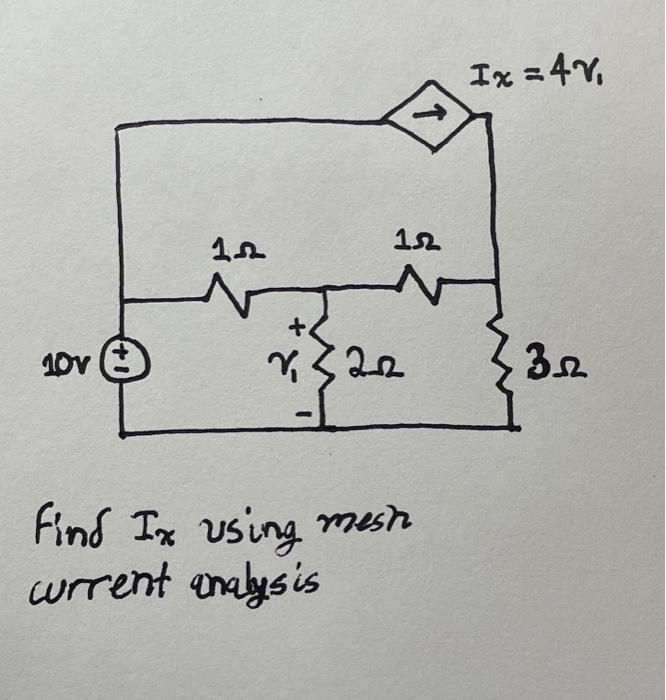 Ix = 4v₁
1Ω 1Ω
10v + - + v₁ - 2Ω 3Ω
Find Ix using mesh
current analysis